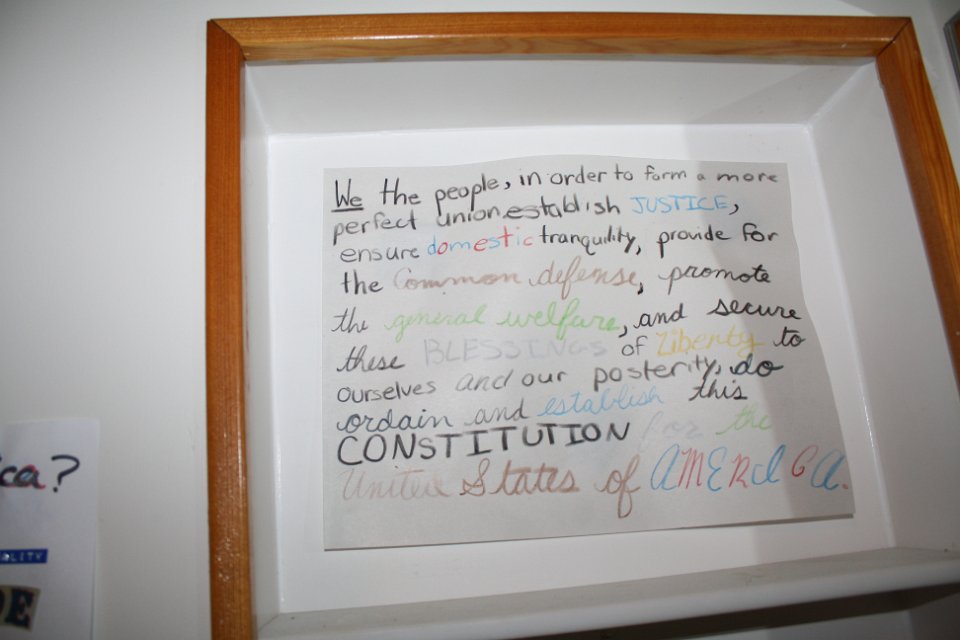 We the people, in order to form a more
perfect union, establish JUSTICE,
ensure domestic tranquility, provide for
the Common defense, promote
the general welfare, and secure
these BLESSINGS of Liberty to
ourselves and our posterity, do
ordain and establish this
CONSTITUTION for the
United States of AMERICA.
ca?
ALITY
DE